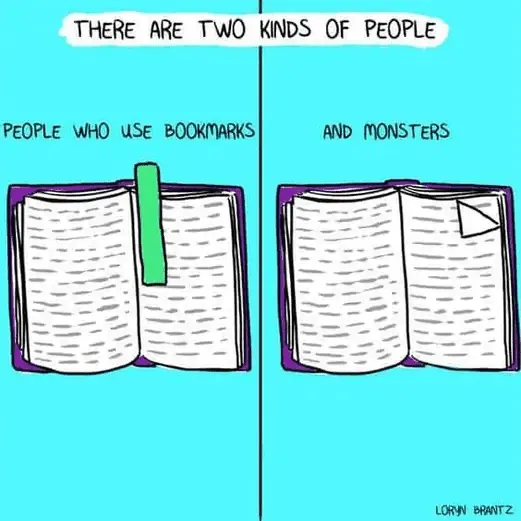 THERE ARE TWO KINDS OF PEOPLE
PEOPLE WHO USE BOOKMARKS
AND MONSTERS
LORYN BRANTZ